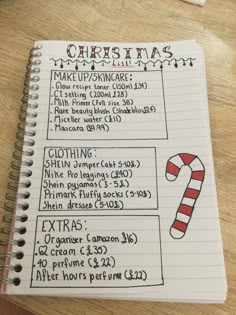 CHRISTMAS
List!
MAKEUP/SKINCARE:
. Glow recipe toner (150ml £34)
. CT setting (200ml £28)
. Milk Primer (Full size 38)
. Rare beauty blush (shade bliss) (£24)
. Micellar water (£11)
. Mascara (£9.99)
CLOTHING:
Shein Jumper (ab! 5-10£)
Nike Pro leggings (£40)
Shein pyjamas (3-5£)
Primark fluffy socks (5-10£)
Shein dresses (5-10£)
EXTRAS:
. Organiser (amazon £16)
. 62 cream (£35)
. 40 perfume (£22)
After hours perfume (£22)